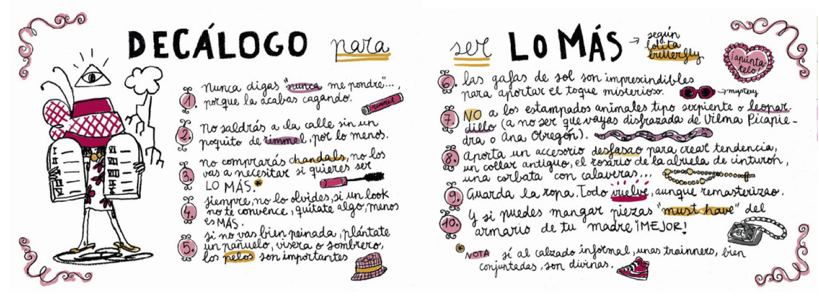 DECÁLOGO para
1. nunca digas "nunca me pondré"...,
porque la acabas cagando.
2. no saldrás a la calle sin un
poquito de rimmel, por lo menos.
3. no comprarás chandals, no los
vas a necesitar si quieres ser
LO MÁS. *
4. siempre, no lo olvides, si un look
no te convence, quítate algo, menos
es MÁS.
5. si no vas bien peinada, plántate
un pañuelo, visera o sombrero,
los pelos son importantes
ser LO MÁS → según
lolita
butterfly
¡apúnta
telo!
6. las gafas de sol son imprescindibles
para aportar el toque misterioso. → mystery
7. NO a los estampados animales tipo serpiente o leopar
dillo (a no ser que vayas disfrazada de Vilma Picapie-
dra o Ana Obregón).
8. Aporta un accesorio desfasao para crear tendencia,
un collar antiguo, el rosario de la abuela de cinturón,
una corbata con calaveras...
9. Guarda la ropa. Todo vuelve, aunque remasterizao.
10. Y si puedes mangar piezas "must have" del
armario de tu madre ¡MEJOR!
* NOTA sí al calzado informal, unas trainners, bien
conjuntadas, son divinas.